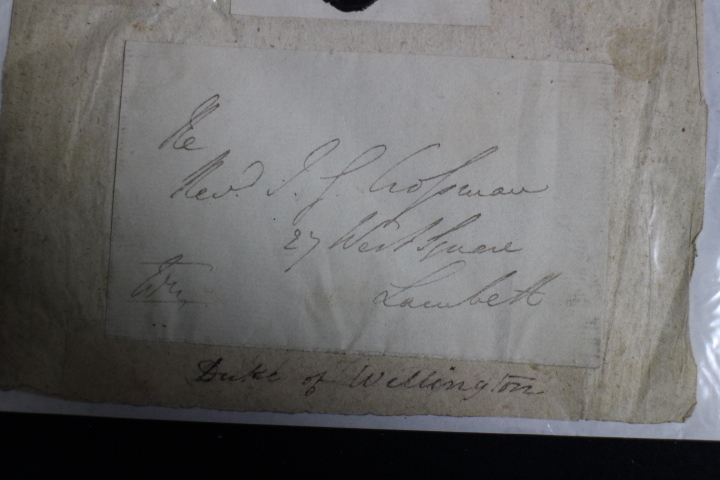 The
Revd. J. G. Crossman
27 West Square
Lambeth
Duke of Wellington